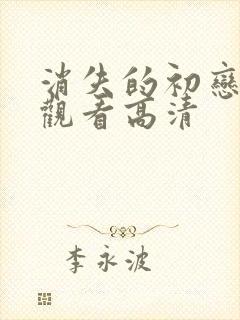 消失的初戀
觀看高清
李永波